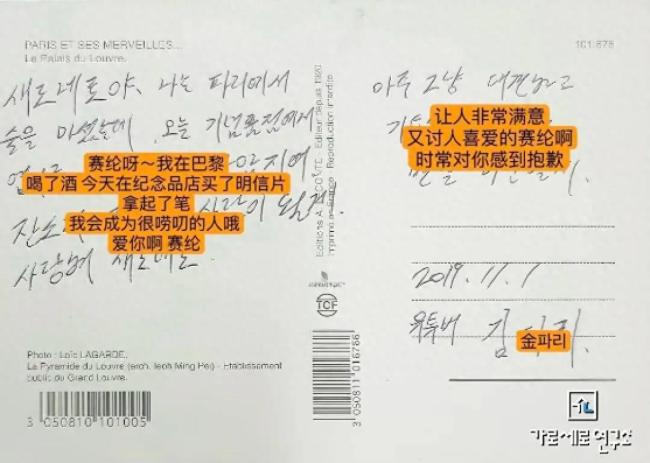 PARIS ET SES MERVEILLES...
Le Palais du Louvre.
101 678
새로네로야, 나는 파리에서
술을 마셨는데 오늘 기념품점에서
赛纶呀～我在巴黎
喝了酒 今天在纪念品店买了明信片
拿起了笔
我会成为很唠叨的人哦
爱你啊 赛纶
사랑해 새로네로
Photo : Loïc LAGARDE.
La Pyramide du Louvre (arch. Ieoh Ming Pei) - Etablissement
public du Grand Louvre.
3 050810 101005
Editions A. LECONTE - Editeur depuis 1920
Imprimé en France - Reproduction interdite
TCF
3 050811 016786
아주 그냥 대견하고
让人非常满意
又讨人喜爱的赛纶啊
时常对你感到抱歉
2019. 11. 1
유튜버 김 리
金파리
가로세로연구소